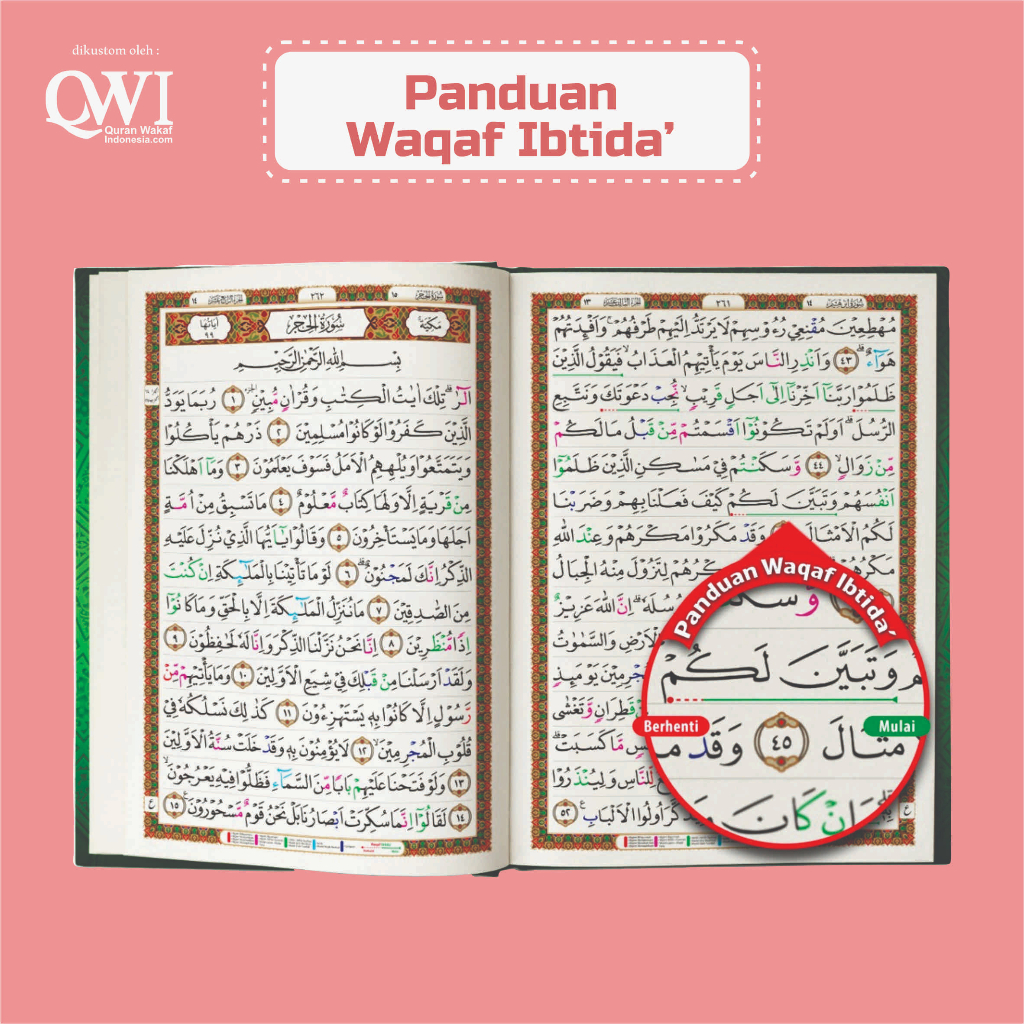 dikustom oleh :
QWI
Quran Wakaf
Indonesia.com
Panduan
Waqaf Ibtida’
١٤
٢٦٢
١٥
سُوْرَةُ الْحِجْرِ
مَكِّيَّة
اٰيَاتُهَا
٩٩
بِسْمِ اللّٰهِ الرَّحْمٰنِ الرَّحِيْمِ
الۤرٰ ۗ تِلْكَ اٰيٰتُ الْكِتٰبِ وَقُرْاٰنٍ مُّبِيْنٍ ۝١ رُبَمَا يَوَدُّ
الَّذِيْنَ كَفَرُوْا لَوْ كَانُوْا مُسْلِمِيْنَ ۝٢ ذَرْهُمْ يَأْكُلُوْا
وَيَتَمَتَّعُوْا وَيُلْهِهِمُ الْاَمَلُ فَسَوْفَ يَعْلَمُوْنَ ۝٣ وَمَآ اَهْلَكْنَا
مِنْ قَرْيَةٍ اِلَّا وَلَهَا كِتَابٌ مَّعْلُوْمٌ ۝٤ مَا تَسْبِقُ مِنْ اُمَّةٍ
اَجَلَهَا وَمَا يَسْتَأْخِرُوْنَ ۝٥ وَقَالُوْا يٰٓاَيُّهَا الَّذِيْ نُزِّلَ عَلَيْهِ
الذِّكْرُ اِنَّكَ لَمَجْنُوْنٌ ۝٦ لَوْ مَا تَأْتِيْنَا بِالْمَلٰۤىِٕكَةِ اِنْ كُنْتَ
مِنَ الصّٰدِقِيْنَ ۝٧ مَا نُنَزِّلُ الْمَلٰۤىِٕكَةَ اِلَّا بِالْحَقِّ وَمَا كَانُوْٓا
اِذًا مُّنْظَرِيْنَ ۝٨ اِنَّا نَحْنُ نَزَّلْنَا الذِّكْرَ وَاِنَّا لَهٗ لَحٰفِظُوْنَ ۝٩
وَلَقَدْ اَرْسَلْنَا مِنْ قَبْلِكَ فِيْ شِيَعِ الْاَوَّلِيْنَ ۝١٠ وَمَا يَأْتِيْهِمْ مِّنْ
رَّسُوْلٍ اِلَّا كَانُوْا بِهٖ يَسْتَهْزِءُوْنَ ۝١١ كَذٰلِكَ نَسْلُكُهٗ فِيْ
قُلُوْبِ الْمُجْرِمِيْنَ ۝١٢ لَا يُؤْمِنُوْنَ بِهٖ وَقَدْ خَلَتْ سُنَّةُ الْاَوَّلِيْنَ
۝١٣ وَلَوْ فَتَحْنَا عَلَيْهِمْ بَابًا مِّنَ السَّمَاۤءِ فَظَلُّوْا فِيْهِ يَعْرُجُوْنَ ۙ
۝١٤ لَقَالُوْٓا اِنَّمَا سُكِّرَتْ اَبْصَارُنَا بَلْ نَحْنُ قَوْمٌ مَّسْحُوْرُوْنَ ۝١٥
١٣
٢٦١
١٤
مُهْطِعِيْنَ مُقْنِعِيْ رُءُوْسِهِمْ لَا يَرْتَدُّ اِلَيْهِمْ طَرْفُهُمْ ۚ وَاَفْـِٕدَتُهُمْ
هَوَاۤءٌ ۗ ۝٤٣ وَاَنْذِرِ النَّاسَ يَوْمَ يَأْتِيْهِمُ الْعَذَابُ فَيَقُوْلُ الَّذِيْنَ
ظَلَمُوْا رَبَّنَآ اَخِّرْنَآ اِلٰٓى اَجَلٍ قَرِيْبٍ ۙ نُّجِبْ دَعْوَتَكَ وَنَتَّبِعِ
الرُّسُلَ ۗ اَوَلَمْ تَكُوْنُوْٓا اَقْسَمْتُمْ مِّنْ قَبْلُ مَا لَكُمْ
مِّنْ زَوَالٍ ۙ ۝٤٤ وَّسَكَنْتُمْ فِيْ مَسٰكِنِ الَّذِيْنَ ظَلَمُوْٓا
اَنْفُسَهُمْ وَتَبَيَّنَ لَكُمْ كَيْفَ فَعَلْنَا بِهِمْ وَضَرَبْنَا
لَكُمُ الْاَمْثَالَ وَقَدْ مَكَرُوْا مَكْرَهُمْ وَعِنْدَ اللّٰهِ
مَكْرُهُمْ كْرُهُمْ لِتَزُوْلَ مِنْهُ الْجِبَالُ
سُلَهٗ ۗ اِنَّ اللّٰهَ عَزِيْزٌ
لْاَرْضِ وَالسَّمٰوٰتُ
جْرِمِيْنَ يَوْمَىِٕذٍ
قَطِرَانٍ وَّتَغْشٰى
مَّا كَسَبَتْ ۗ
لِّلنَّاسِ وَلِيُنْذَرُوْا
كَّرَ اُولُوا الْاَلْبَابِ ۝٥٢
Panduan Waqaf Ibtida’
وَّسَكَ
وَتَبَيَّنَ لَكُمْ
Berhenti
Mulai
مْثَالَ ۝٤٥ وَقَدْ مَ
اِنْ كَانَ مَ